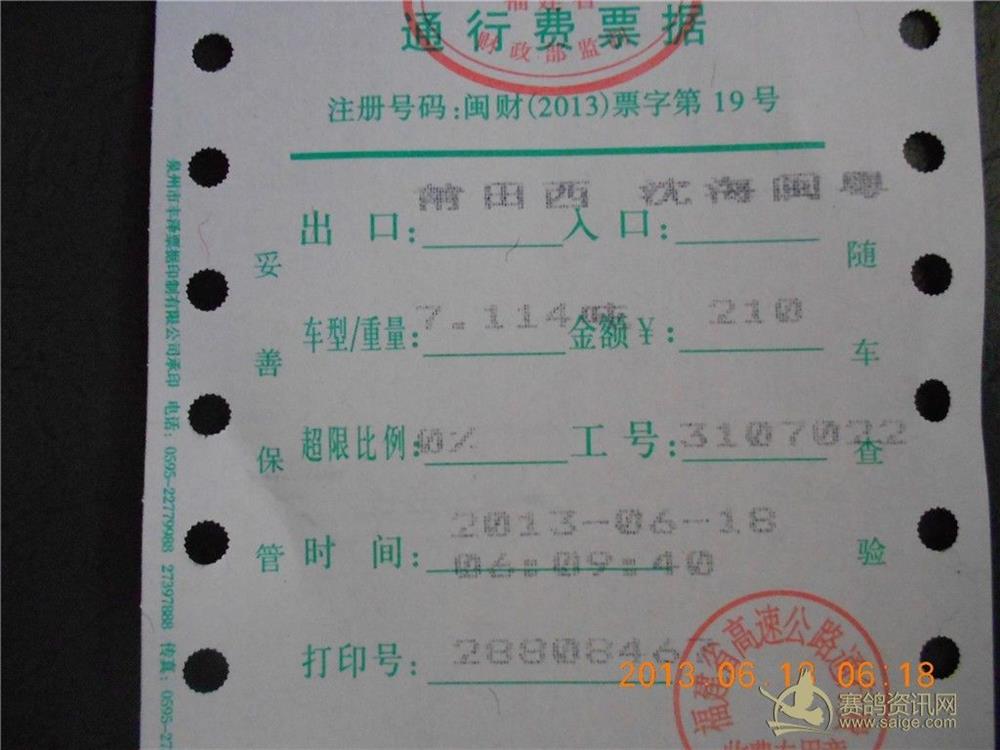 福建省
通行费票据
财政部监
注册号码:闽财(2013)票字第 19 号
莆田西 沈海闽粤
出 口: 入 口:
7.114吨 210
车型/重量: 金额¥:
超限比例:0% 工 号:3107022
2013-06-18
时 间:06:09:40
打印号:2880846
妥善保管
随车查验
泉州市丰泽票据印制有限公司承印 电话:0595-22779988 27397888 传真:0595-27
福建省高速公路
2013.06.18 06:18
赛鸽资讯网
www.saige.com